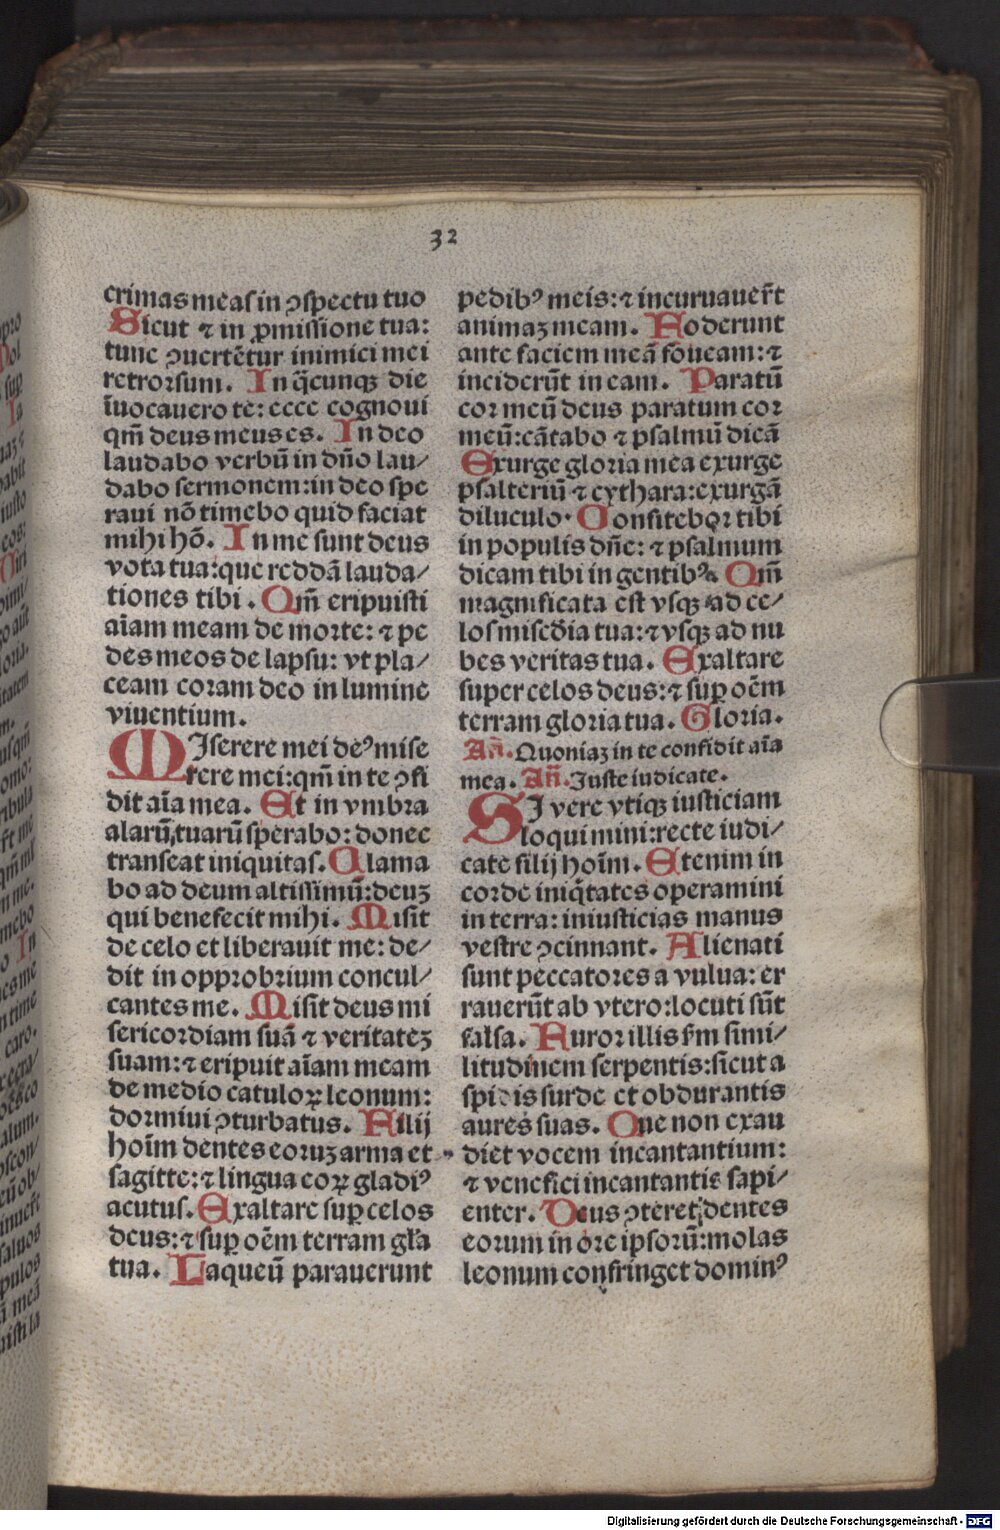 32
crimas meas in ꝯspectu tuo
Sicut ⁊ in ꝓmissione tua:
tunc ꝯuertētur inimici mei
retrorsum. In q̄cunqꝫ die
īuocauero te: ecce cognoui
qm̄ deus meus es. In deo
laudabo verbū in dn̄o lau/
dabo sermonem: in deo spe
raui nō timebo quid faciat
mihi hō. In me sunt deus
vota tua: que reddā lauda/
tiones tibi. Qm̄ eripuisti
aīam meam de morte: ⁊ pe
des meos de lapsu: vt pla/
ceam coram deo in lumine
viuentium.
MIserere mei deꝰ mise
rere mei: qm̄ in te ꝯfi
dit aīa mea. Et in vmbra
alarū tuarū sperabo: donec
transeat iniquitas. Clama
bo ad deum altissimū: deuꝫ
qui benefecit mihi. Misit
de celo et liberauit me: de/
dit in opprobrium concul/
cantes me. Misit deus mi
sericordiam suā ⁊ veritateꝫ
suam: ⁊ eripuit aīam meam
de medio catuloꝝ leonum:
dormiui ꝯturbatus. Filij
hoīm dentes eoruꝫ arma et
sagitte: ⁊ lingua eoꝝ gladiꝰ
acutus. Exaltare suꝑ celos
deus: ⁊ suꝑ oēm terram gl̄a
tua. Laqueū parauerunt
pedibꝰ meis: ⁊ incuruauer̄t
animaꝫ meam. Foderunt
ante faciem meā foueam: ⁊
inciderūt in eam. Paratū
cor meū deus paratum cor
meū: cātabo ⁊ psalmū dicā
Exurge gloria mea exurge
psalteriū ⁊ cythara: exurgā
diluculo. Confiteboꝛ tibi
in populis dn̄e: ⁊ psalmum
dicam tibi in gentibꝰ. Qm̄
magnificata est vsqꝫ ad ce/
los mis̄cdia tua: ⁊ vsqꝫ ad nu
bes veritas tua. Exaltare
super celos deus: ⁊ suꝑ oēm
terram gloria tua. Gloria.
Añ. Quoniaꝫ in te confidit aīa
mea. Añ. Iuste iudicate.
SI vere vtiqꝫ iusticiam
loquimini: recte iudi/
cate filij hoīm. Etenim in
corde iniq̄tates operamini
in terra: iniusticias manus
vestre ꝯcinnant. Alienati
sunt peccatores a vulua: er
rauerūt ab vtero: locuti sūt
falsa. Furor illis s̄m simi/
litudinem serpentis: sicut a
spidis surde et obdurantis
aures suas. Que non exau
diet vocem incantantium:
⁊ venefici incantantis sapi/
enter. Deus ꝯteret dentes
eorum in ore ipsorū: molas
leonum confringet dominꝰ
Digitalisierung gefördert durch die Deutsche Forschungsgemeinschaft - DFG